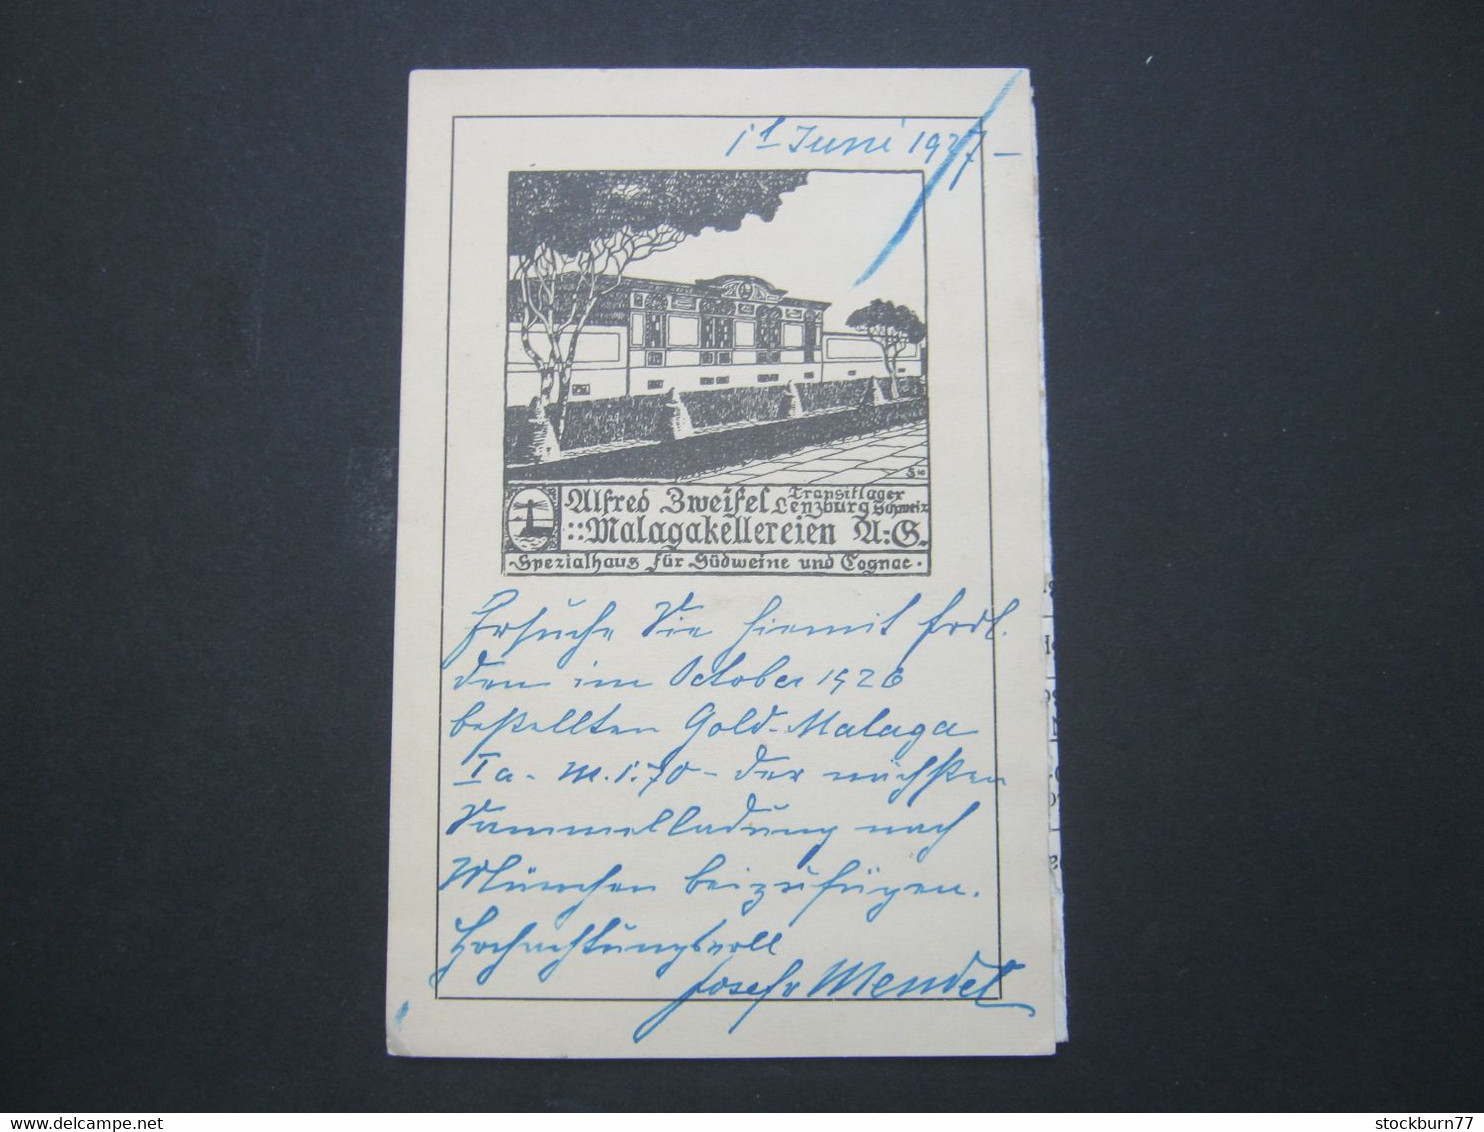 1t Juni 1927 –
Alfred Zweifel Transitlager Lenzburg Schweiz
::Malagakellereien A:G.
Spezialhaus für Südweine und Cognac.
Ersuche Sie hiemit frdl.
den im October 1926
bestellten Gold-Malaga
Ia - M. 1.70 – der nächsten
Sammelladung nach
München beizufügen.
Hochachtungsvoll
Josef Mendel
stockburn77